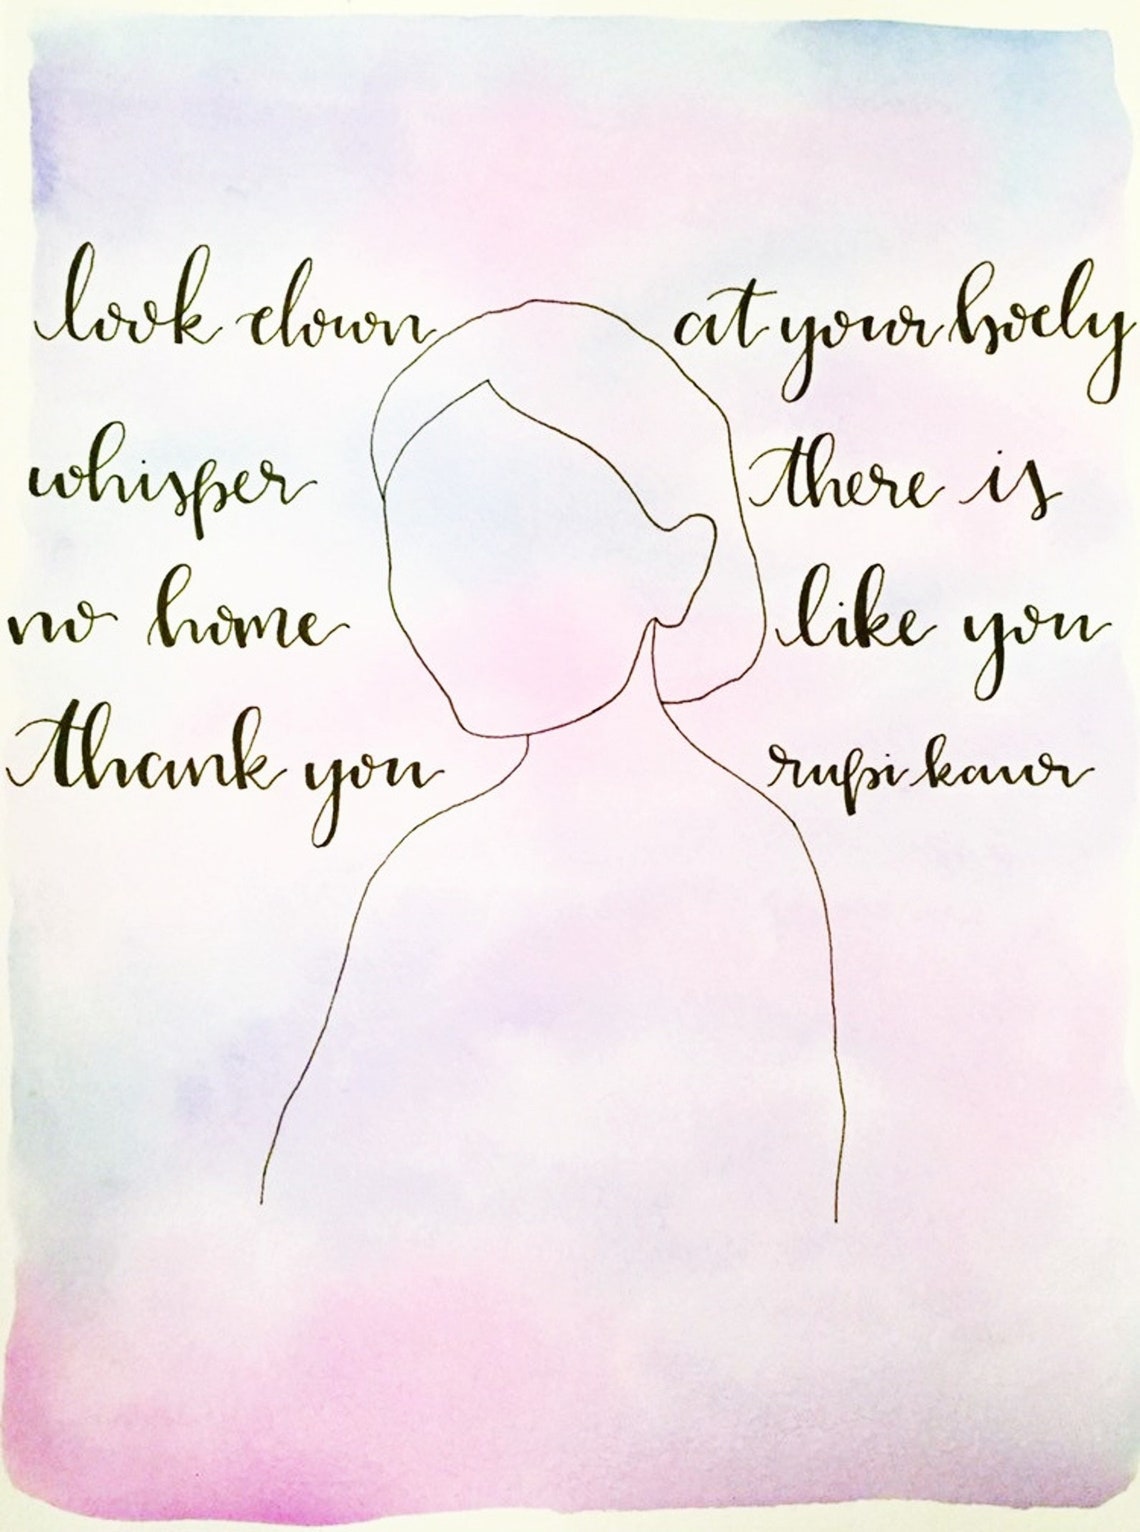 look down at your body
whisper there is
no home like you
thank you rupi kaur